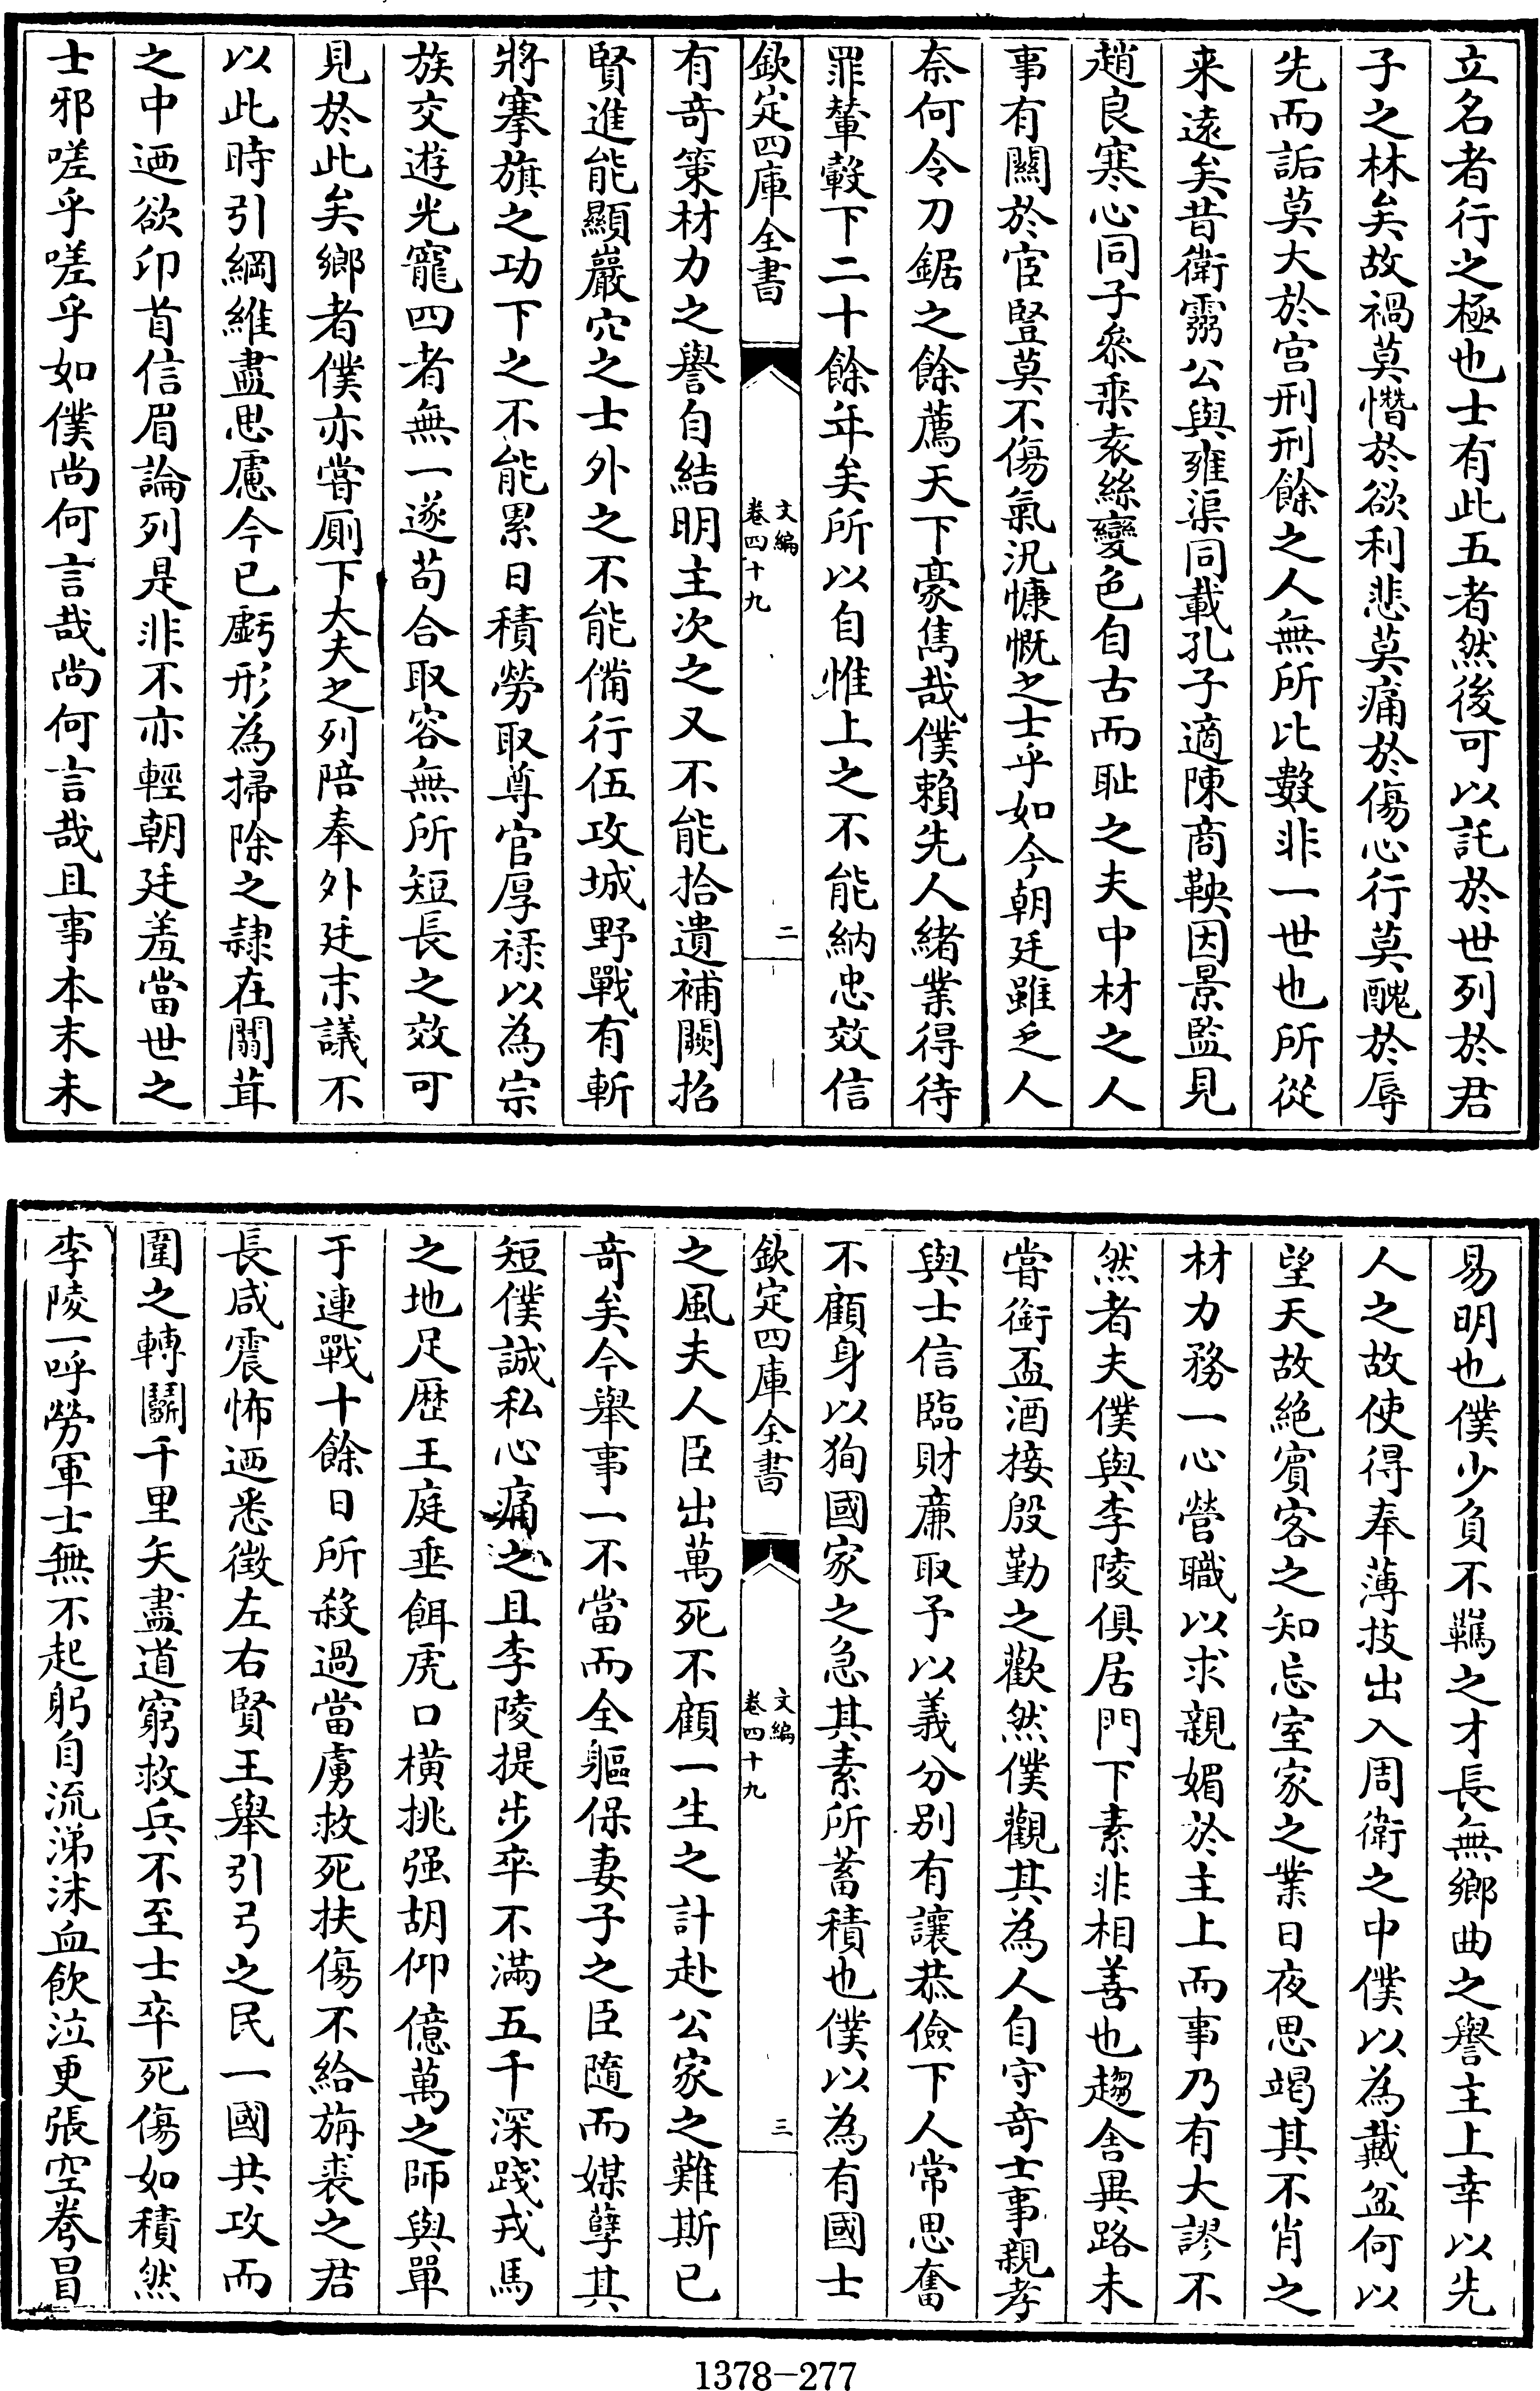 立名者行之極也士有此五者然後可以託於世列於君
子之林矣故禍莫憯於欲利悲莫痛於傷心行莫醜於辱
先而詬莫大於宫刑刑餘之人無所比數非一世也所從
来逺矣昔衛靈公與雍渠同載孔子適陳商鞅因景監見
趙良寒心同子叅乗袁絲變色自古而耻之夫中材之人
事有闗於宦豎莫不傷氣況慷慨之士乎如今朝廷雖乏人
奈何令刀鋸之餘薦天下豪雋哉僕賴先人緒業得待
罪輦轂下二十餘年矣所以自惟上之不能納忠效信
欽定四庫全書
文編
卷四十九
二
有竒策材力之譽自結明主次之又不能拾遺補闕招
賢進能顯巖穴之士外之不能備行伍攻城野戰有斬
將搴旗之功下之不能累日積勞取尊官厚禄以為宗
族交遊光寵四者無一遂苟合取容無所短長之效可
見於此矣鄉者僕亦嘗厠下大夫之列陪奉外廷末議不
以此時引綱維盡思慮今已虧形為掃除之隷在闒茸
之中迺欲卬首信眉論列是非不亦輕朝廷羞當世之
士邪嗟乎嗟乎如僕尚何言哉尚何言哉且事本末未
易明也僕少負不羈之才長無鄉曲之譽主上幸以先
人之故使得奉薄技出入周衛之中僕以為戴盆何以
望天故絶賓客之知忘室家之業日夜思竭其不肖之
材力務一心營職以求親媚於主上而事乃有大謬不
然者夫僕與李陵俱居門下素非相善也趨舍異路未
嘗銜盃酒接殷勤之歡然僕觀其為人自守竒士事親孝
與士信臨財亷取予以義分别有讓恭儉下人常思奮
不顧身以狥國家之急其素所蓄積也僕以為有國士
欽定四庫全書
文編
卷四十九
三
之風夫人臣出萬死不顧一生之計赴公家之難斯已
竒矣今舉事一不當而全軀保妻子之臣隨而媒孽其
短僕誠私心痛之且李陵提步卒不滿五千深踐戎馬
之地足歴王庭垂餌虎口横挑强胡仰億萬之師與單
于連戰十餘日所殺過當虜救死扶傷不給旃裘之君
長咸震怖迺悉徴左右賢王舉引弓之民一國共攻而
圍之轉鬭千里矢盡道窮救兵不至士卒死傷如積然
李陵一呼勞軍士無不起躬自流涕沬血飲泣更張空弮冒
1378-277